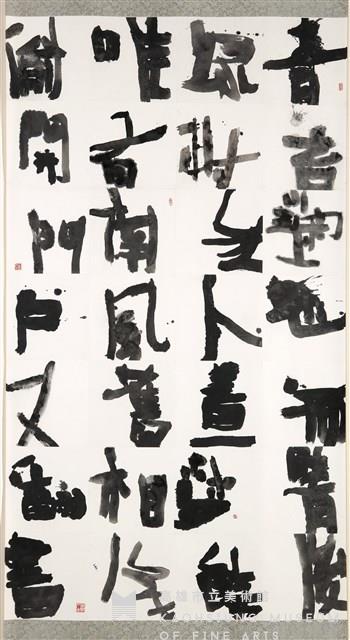 青苔滿地初晴後
綠樹無人晝夢餘
唯有南風舊相識
偷開門戶又翻書
高雄市立美術館
KAOHSIUNG MUSEUM
OF FINE ARTS